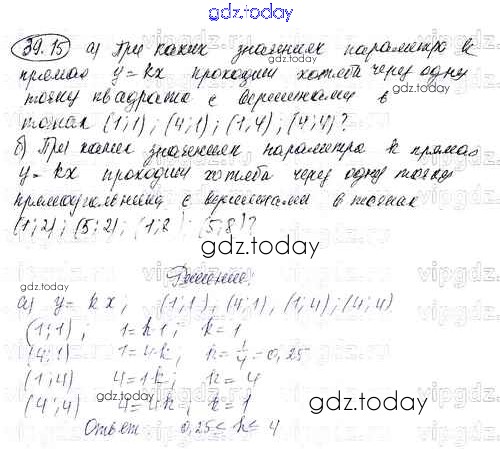 gdz.today
39.15 а) При каких значениях параметра k
прямая y=kx проходит хотя бы через одну
точку квадрата с вершинами в
точках (1;1); (4;1); (1;4); (4;4)?
б) При каких значениях параметра k прямая
y=kx проходит хотя бы через одну точку
прямоугольника с вершинами в точках
(1;2); (5;2); (1;8); (5;8)?
gdz.today
Решение:
а) y=kx; (1;1); (4;1), (1;4); (4;4)
(1;1); 1=k1; k=1
(4;1) 1=4k; k=1/4=0,25
(1;4) 4=1k; k=4
(4;4) 4=4k; k=1
gdz.today
Ответ: 0,25≤k≤4